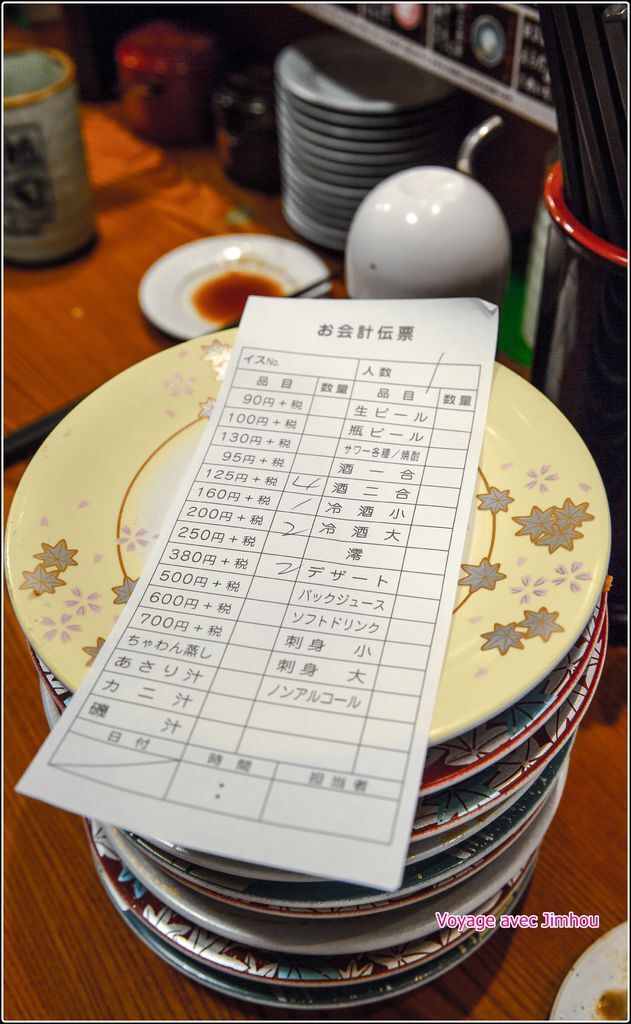 お会計伝票
イスNo. 人数 1
品目 数量 品目 数量
90円+税 生ビール
100円+税 瓶ビール
130円+税 サワー各種/焼酎
95円+税 酒一合
125円+税 4 酒二合
160円+税 1 冷酒小
200円+税 2 冷酒大
250円+税 澪
380円+税 2 デザート
500円+税 パックジュース
600円+税 ソフトドリンク
700円+税 刺身 小
ちゃわん蒸し 刺身 大
あさり汁 ノンアルコール
カニ汁
磯汁
日付 時間 担当者
:
Voyage avec Jimhou